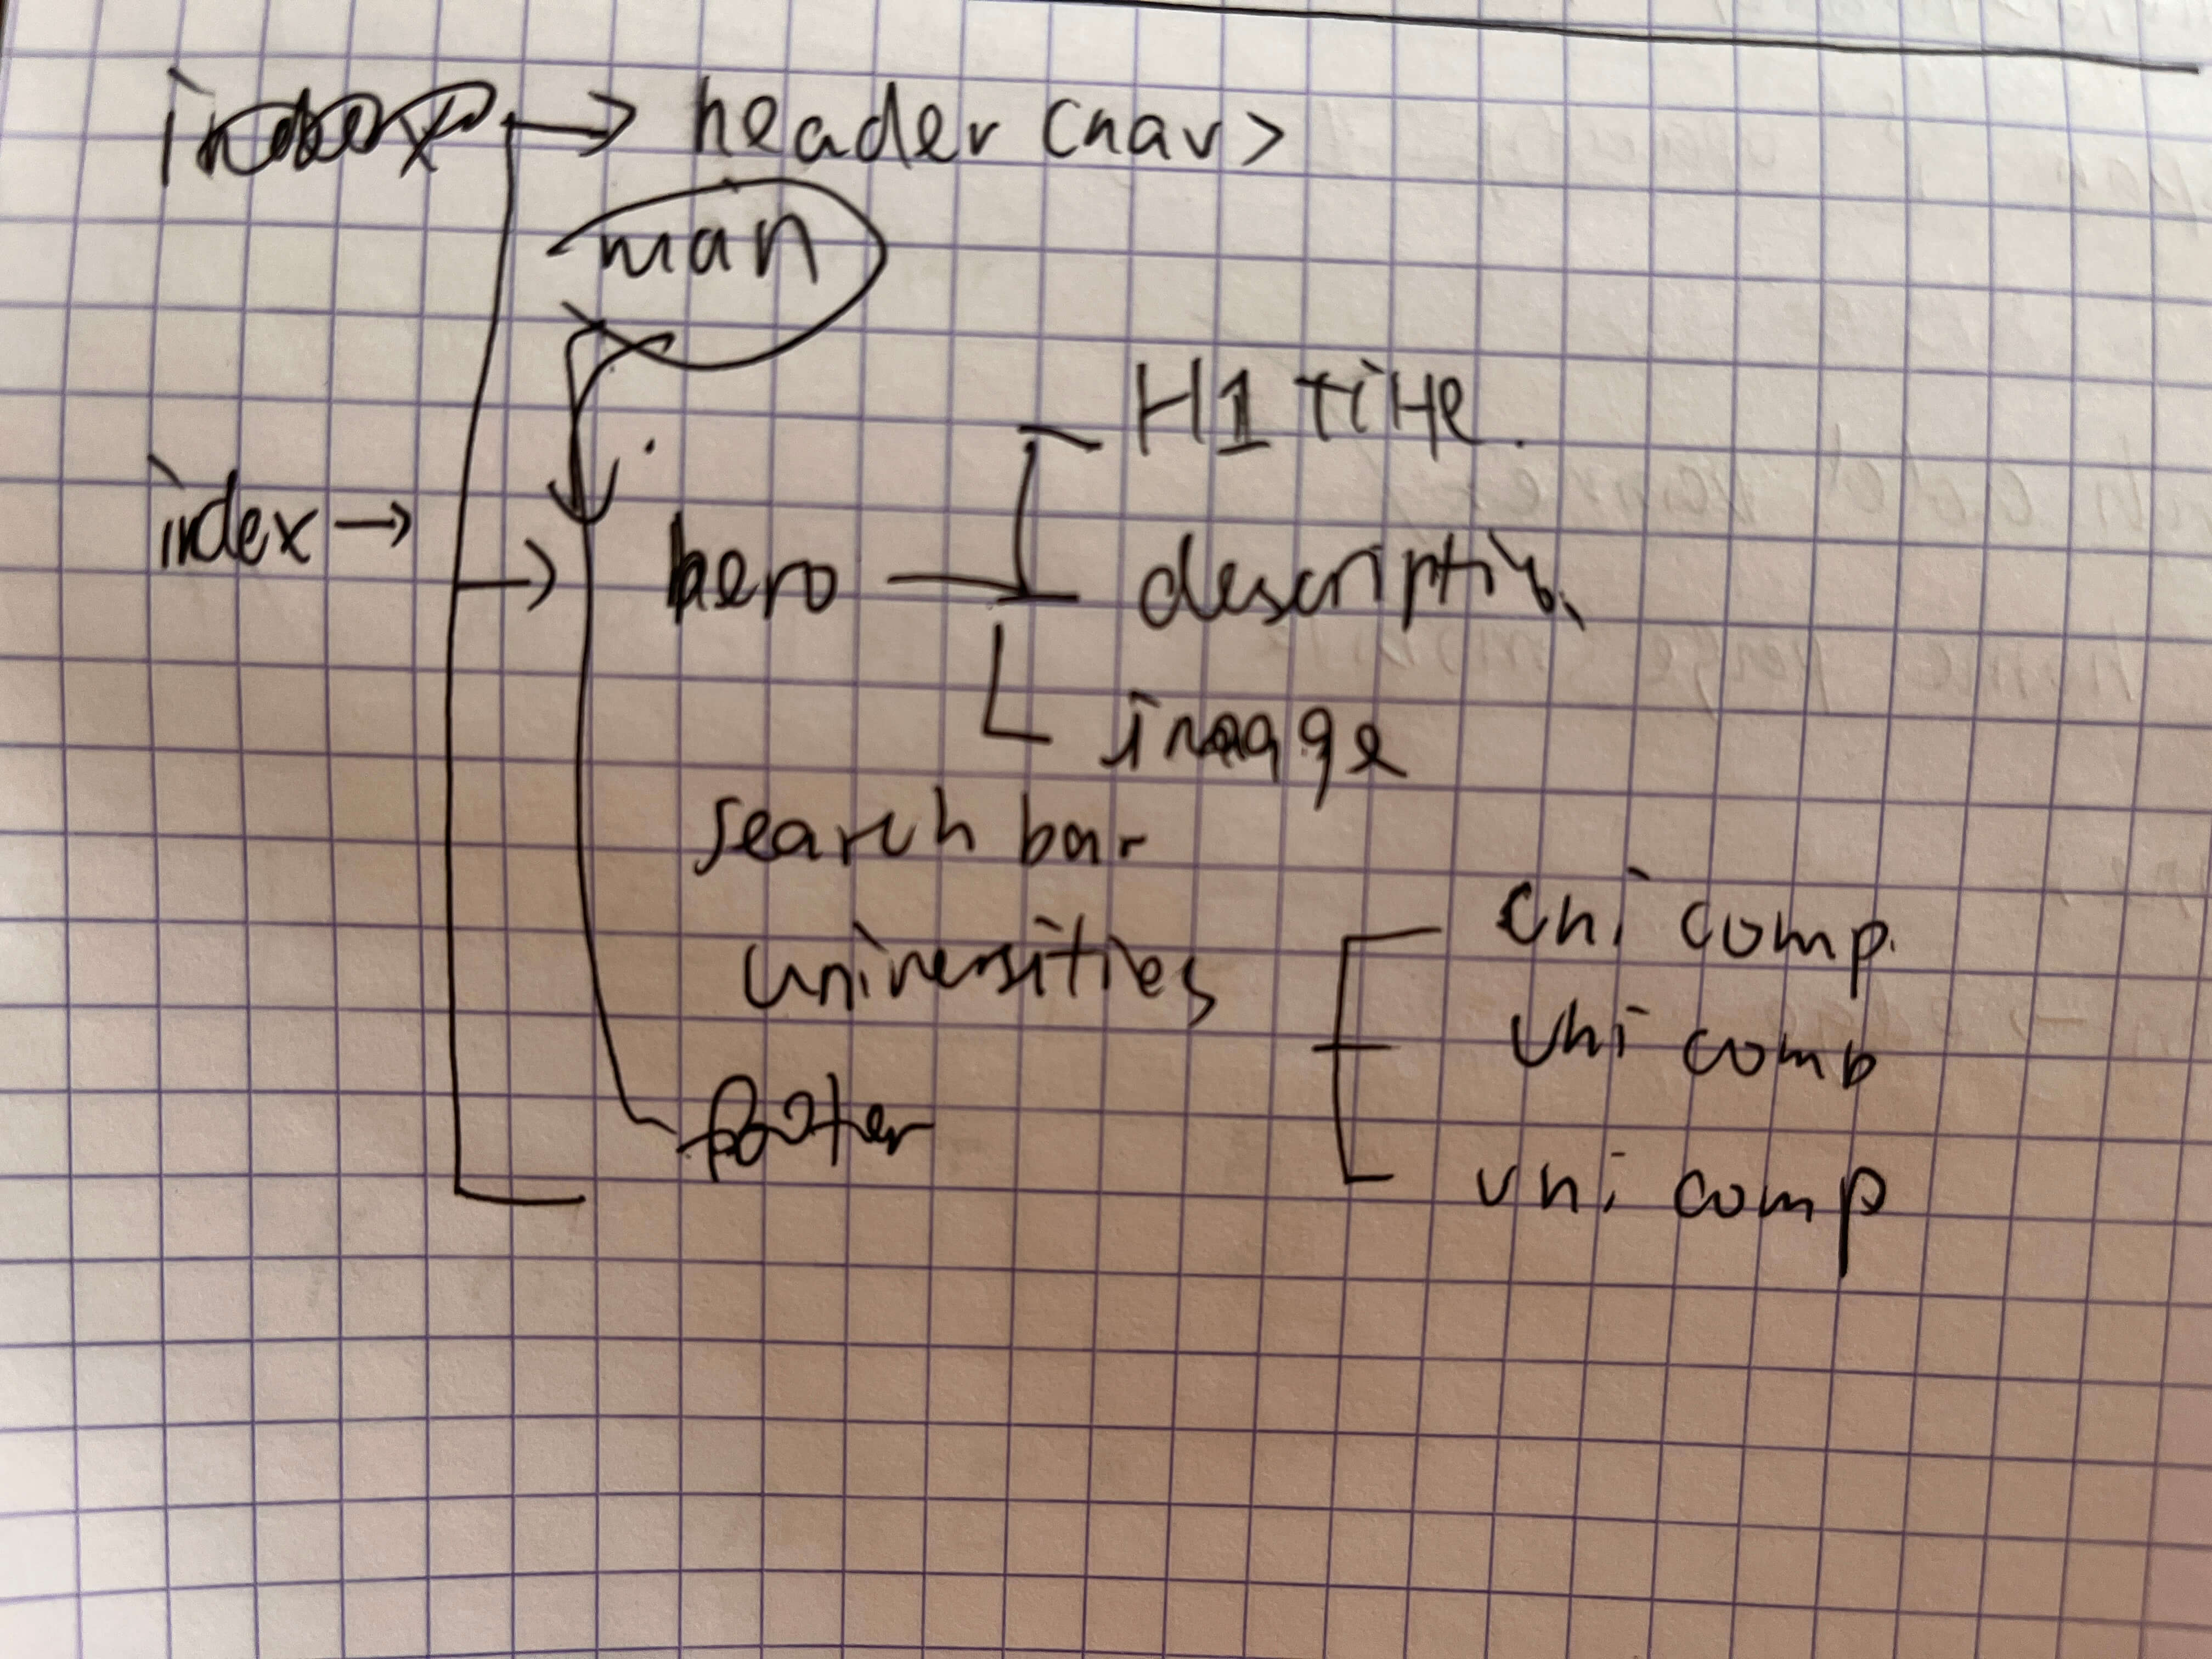 index → header <nav>
man
H1 Title.
index →
→ hero
description
image
search bar
universities
uni comp.
uni comp
uni comp
footer